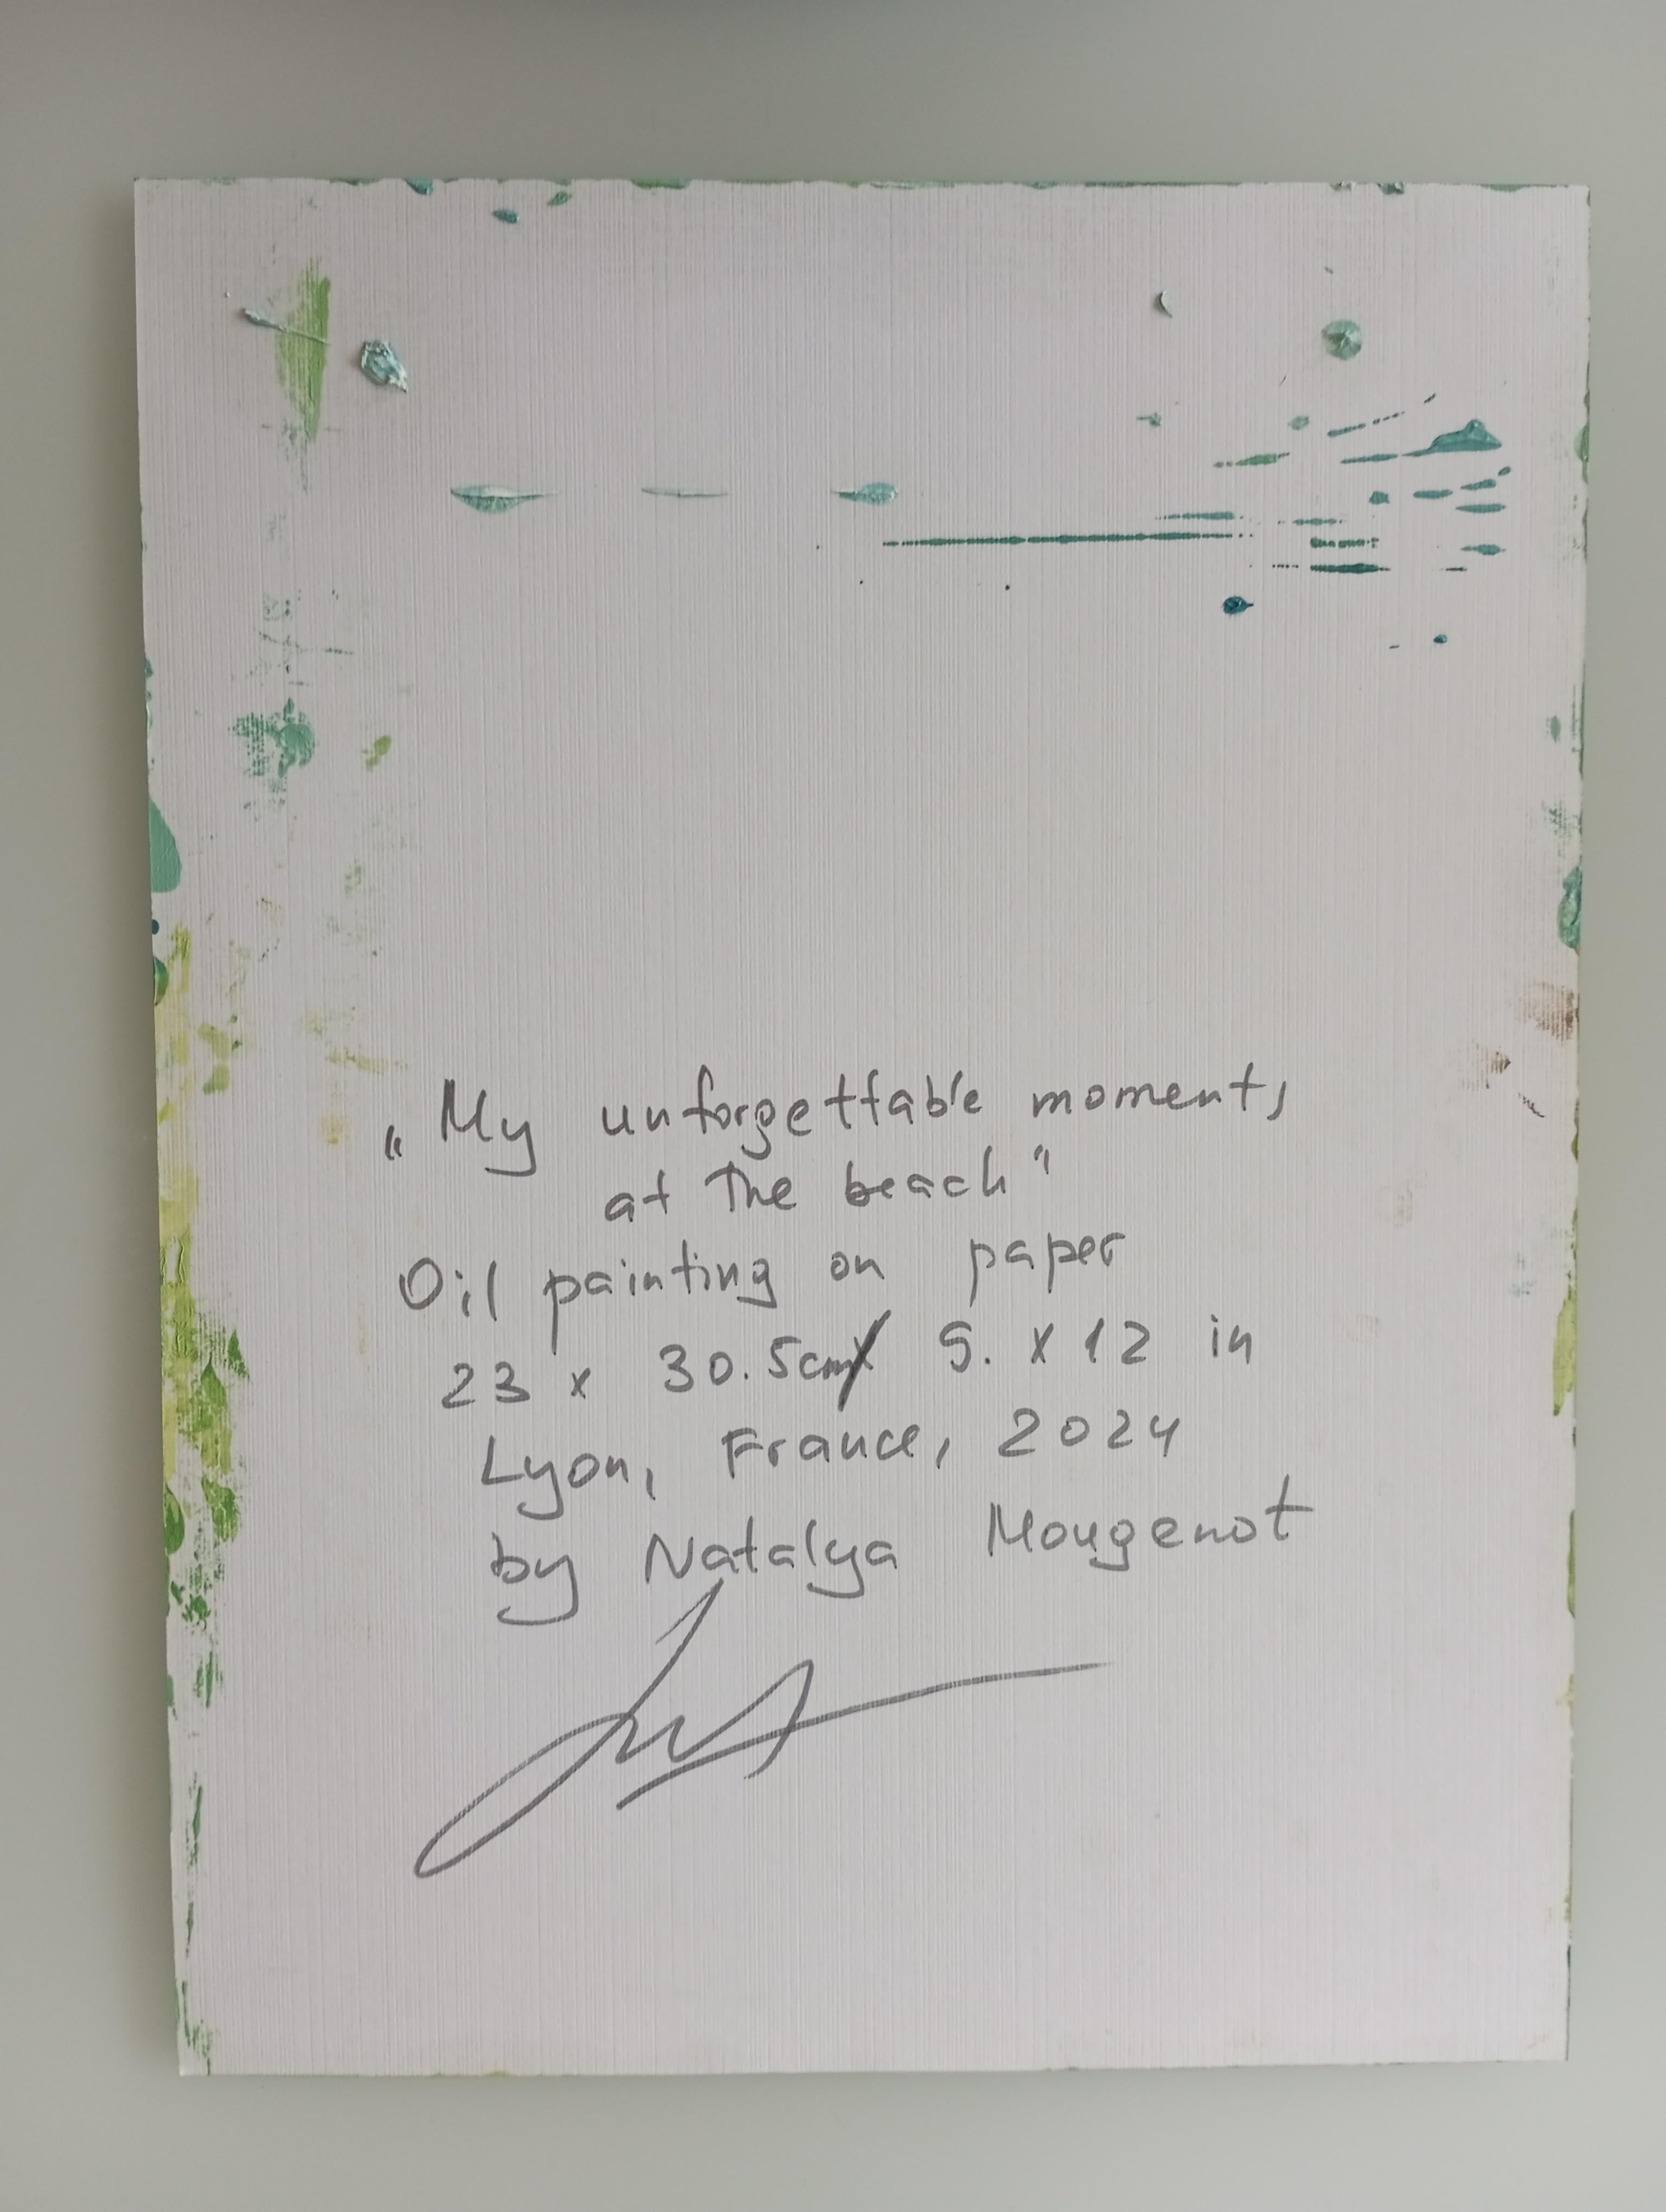 „My unforgettable moments
at the beach"
Oil painting on paper
23 x 30.5cm/ 9. x 12 in
Lyon, France, 2024
by Natalya Mougenot